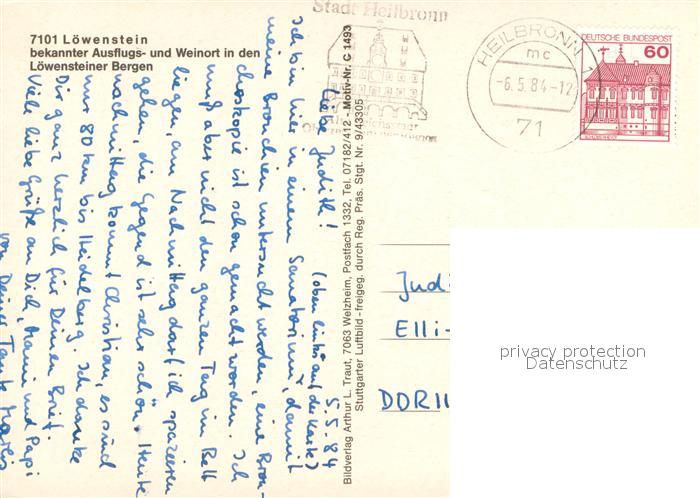 7101 Löwenstein
bekannter Ausflugs- und Weinort in den
Löwensteiner Bergen
Stadt Heilbronn
HEILBRONN 1
mc
-6.5.84-12
71
DEUTSCHE BUNDESPOST
60
5.5.84
Liebe Judith! (oben links auf der Karte)
Ich bin hier in einem Sanatorium, damit
meine Bronchien untersucht werden, eine Bron-
choskopie ist schon gemacht worden. Ich
muß aber nicht den ganzen Tag im Bett
liegen, am Nachmittag darf ich spazieren
gehen, die Gegend ist sehr schön. Heute
nachmittag kommt Christian, es sind
nur 80 km bis Heidelberg. Ich danke
Dir ganz herzlich für Deinen Brief.
Viele liebe Grüße an Dich, Mami und Papi
von Deiner Tante
Bildverlag Arthur L. Traut, 7063 Welzheim, Postfach 1332, Tel. 07182/412 - Motiv-Nr. C 1493
Stuttgarter Luftbild - freigeg. durch Reg. Präs. Stgt. Nr. 9/43305
Judi
Elli-
DORM
privacy protection
Datenschutz